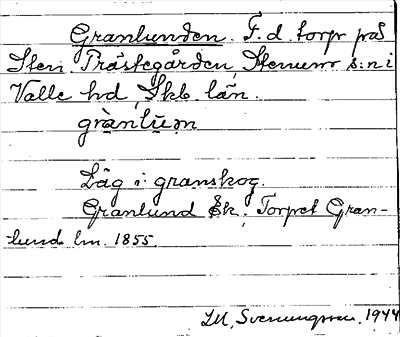 Granlunden. F. d. torp på
Sten. Prästegården, Stenums s:n i
Valle hd, Skb. län.
grànlu̇m
Låg i granskog.
Granlund Ek. Torpet Gran-
-lund lm. 1855.
I.M. Svenungsson. 1944